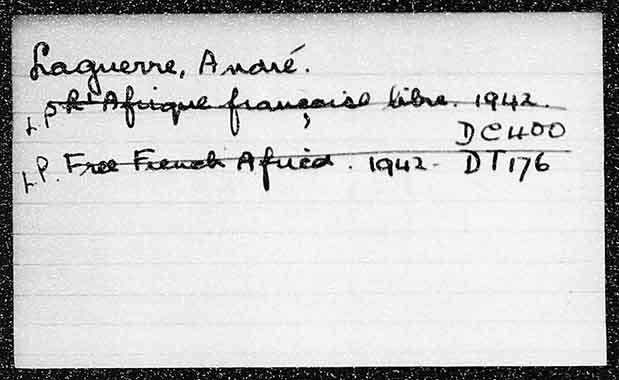 Laguerre, André.
L.P. L'Afrique française libre. 1942.
DC400
L.P. Free French Africa. 1942. DT176